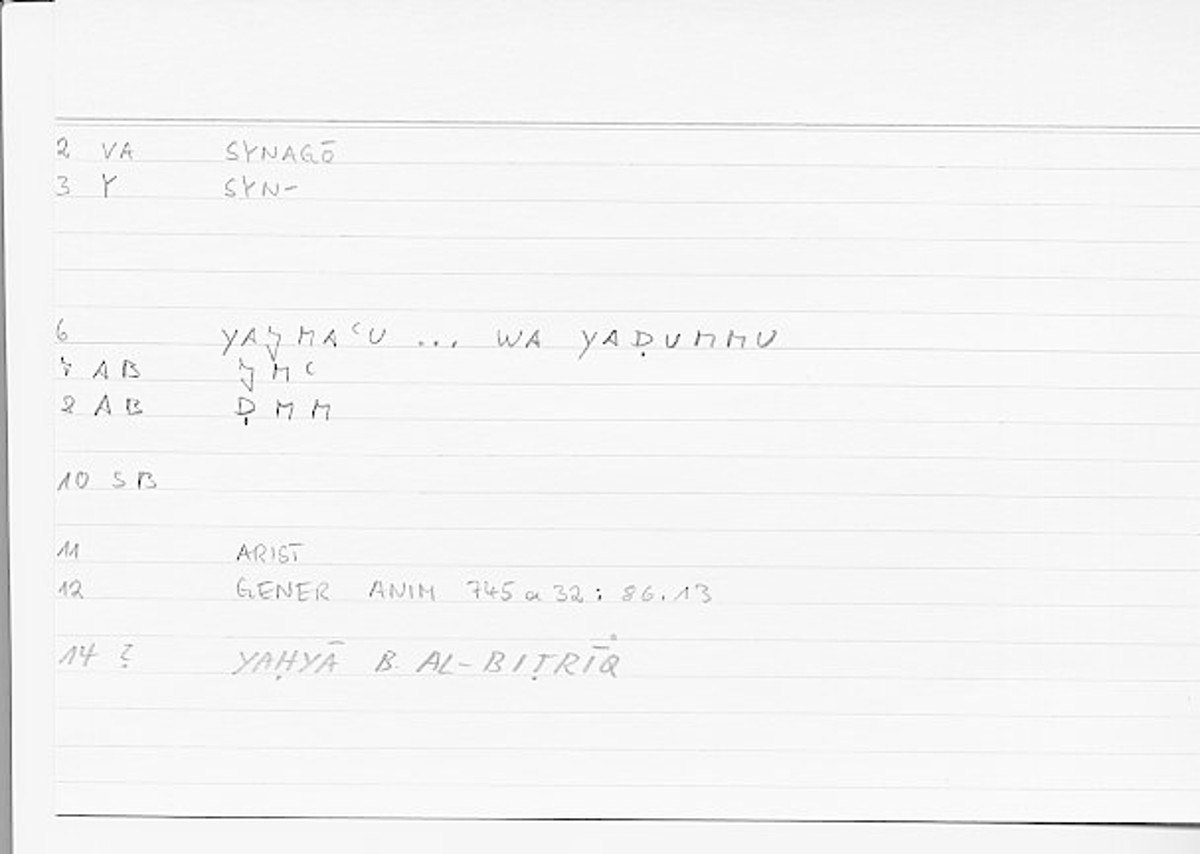 2 VA SYNAGŌ
3 Y SYN-
6 YAǦMAʿU ... WA YAḌUMMU
7 AB ǦMʿ
8 AB ḌMM
10 SB
11 ARIST
12 GENER ANIM 745 a 32 : 86.13
14 ? YAḤYĀ B. AL-BIṬRĪQ